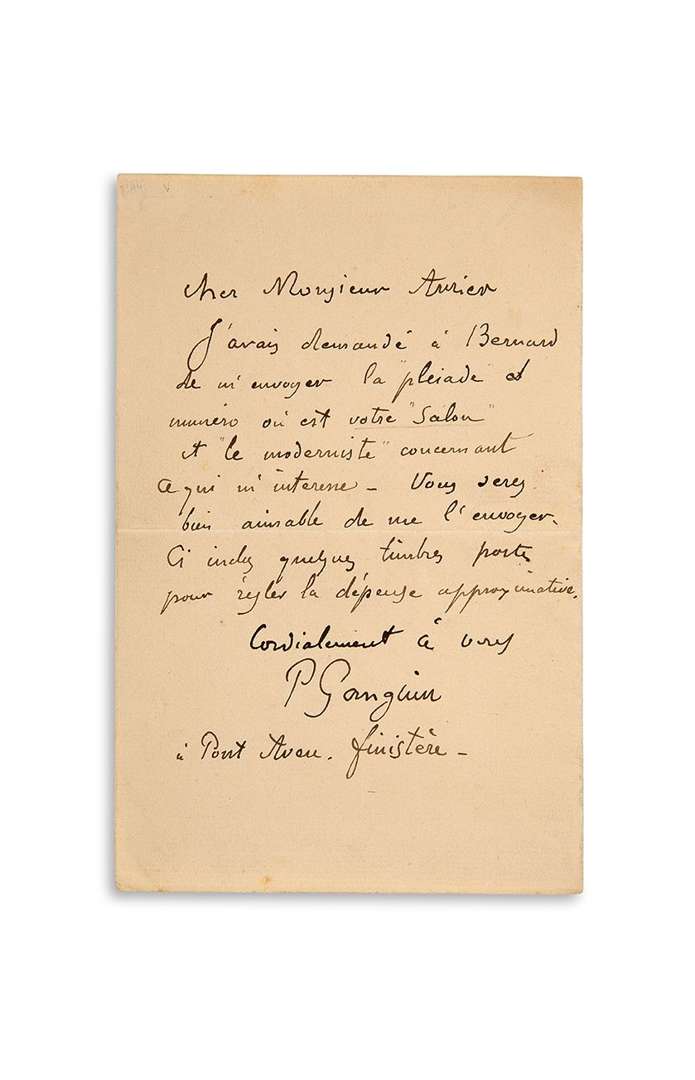 cher Monsieur Aurier
J'avais demandé à Bernard
de m'envoyer la "pleiade"
numéro où est votre "Salon"
et "le moderniste" concernant
ce qui m'interesse – Vous serez
bien aimable de me l'envoyer.
Ci inclus quelques timbres poste
pour régler la dépense approximative.
Cordialement à vous
P Gauguin
à Pont Aven. finistère –